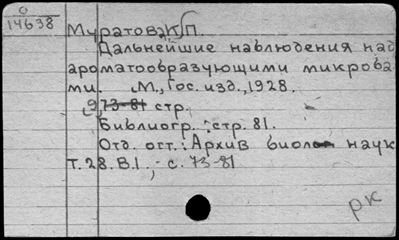 0
14638
Муратова, К.П.
Дальнейшие наблюдения над
ароматообразующими микроба-
ми. М., Гос. изд., 1928.
9, 73-81 стр.
Библиогр.: стр. 81.
Отд. отт.: Архив биол. наук
т. 28. В.1., - с. 73-81
рк